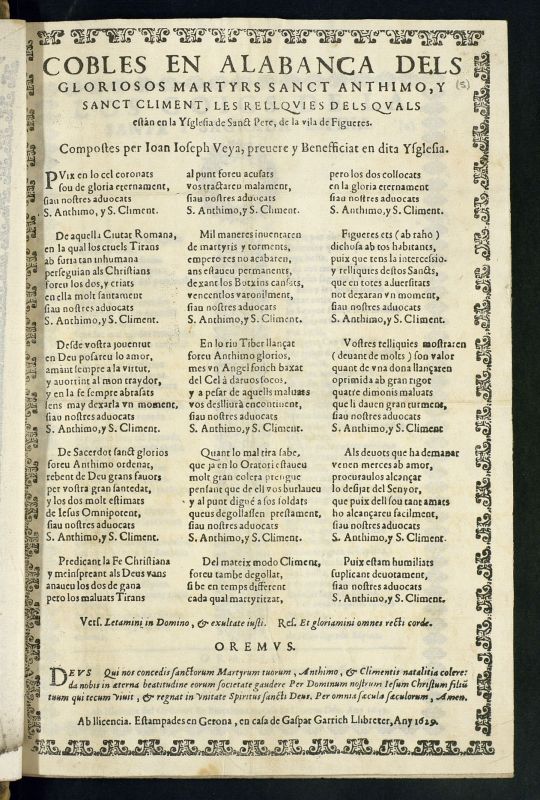 COBLES EN ALABANÇA DELS
GLORIOSOS MARTYRS SANCT ANTHIMO, Y
SANCT CLIMENT, LES RELLQVIES DELS QVALS
estàn en la Ysglesia de Sanct Pere, de la vila de Figueres.
Compostes per Ioan Ioseph Veya, preuere y Benefficiat en dita Ysglesia.
PVix en lo cel coronats
sou de gloria eternament,
siau nostres aduocats
S. Anthimo, y S. Climent.
De aquella Ciutat Romana,
en la qual los cruels Tirans
ab furia tan inhumana
perseguian als Christians
foreu los dos, y criats
en ella molt santament
siau nostres aduocats
S. Anthimo, y S. Climent.
Desde vostra jouentut
en Deu posareu lo amor,
amànt sempre a la virtut,
y auorrint al mon traydor,
y en la fe sempre abrasats
sens may dexarla vn moment,
siau nostres aduocats
S. Anthimo, y S. Climent.
De Sacerdot sanct glorios
foreu Anthimo ordenat,
rebent de Deu grans fauors
per vostra gran santedat,
y los dos molt estimats
de Iesus Omnipotent,
siau nostres aduocats
S. Anthimo, y S. Climent.
Predicant la Fe Christiana
y meinspreant als Deus vans
anaueu los dos de gana
pero los maluats Tirans
al punt foreu acusats
vos tractareu malament,
siau nostres aduocats
S. Anthimo, y S. Climent.
Mil maneres inuentaren
de martyris y torments,
empero res no acabaren,
ans estaueu permanents,
dexant los Botxins cansats,
vencentlos varonilment,
siau nostres aduocats
S. Anthimo, y S. Climent.
En lo riu Tiber llançat
foreu Anthimo glorios,
mes vn Angel fonch baxat
del Cel à daruos socos,
y a pesar de aquells maluats
vos deslliurà encontinent,
siau nostres aduocats
S. Anthimo, y S. Climent.
Quant lo mal tira sabe,
que ja en lo Oratori estaueu
molt gran colera prengue
pensant que de ell vos burlaueu
y al punt digué a sos soldats
queus degollassen prestament,
siau nostres aduocats
S. Anthimo, y S. Climent.
Del mateix modo Climent,
foreu tambe degollat,
si be en temps different
cada qual martyritzat,
pero los dos collocats
en la gloria eternament
siau nostres aduocats
S. Anthimo, y S. Climent.
Figueres ets (ab raho)
dichosa ab tos habitants,
puix que tens la intercessio
y relliquies de stos Sancts,
que en totes aduersitats
not dexaran vn moment,
siau nostres aduocats
S. Anthimo, y S. Climent.
Vostres relliquies mostraren
(deuant de molts) son valor
quant de vna dona llançaren
oprimida ab gran rigor
quatre dimonis maluats
que li dauen gran turment,
siau nostres aduocats
S. Anthimo, y S. Climent
Als deuots que ha demanat
venen merces ab amor,
procuraulos alcançar
lo desijat del Senyor,
que puix dell sou tant amats
ho alcançareu facilment,
siau nostres aduocats
S. Anthimo, y S. Climent.
Puix estam humiliats
suplicant deuotament,
siau nostres aduocats,
S. Anthimo, y S. Climent.
Vers. Letamini in Domino, & exultate iusti. Res. Et gloriamini omnes recti corde.
OREMVS.
DEVS Qui nos concedis sanctorum Martyrum tuorum, Anthimo, & Climentis natalitia colere:
da nobis in æterna beatitudine eorum societate gaudere Per Dominum nostrum Iesum Christum filiũ
tuum qui tecum viuit, & regnat in vnitate Spiritus sancti Deus. Per omnia sæcula sæculorum, Amen.
Ab llicencia. Estampades en Gerona, en casa de Gaspar Garrich Llibreter, Any 1629.